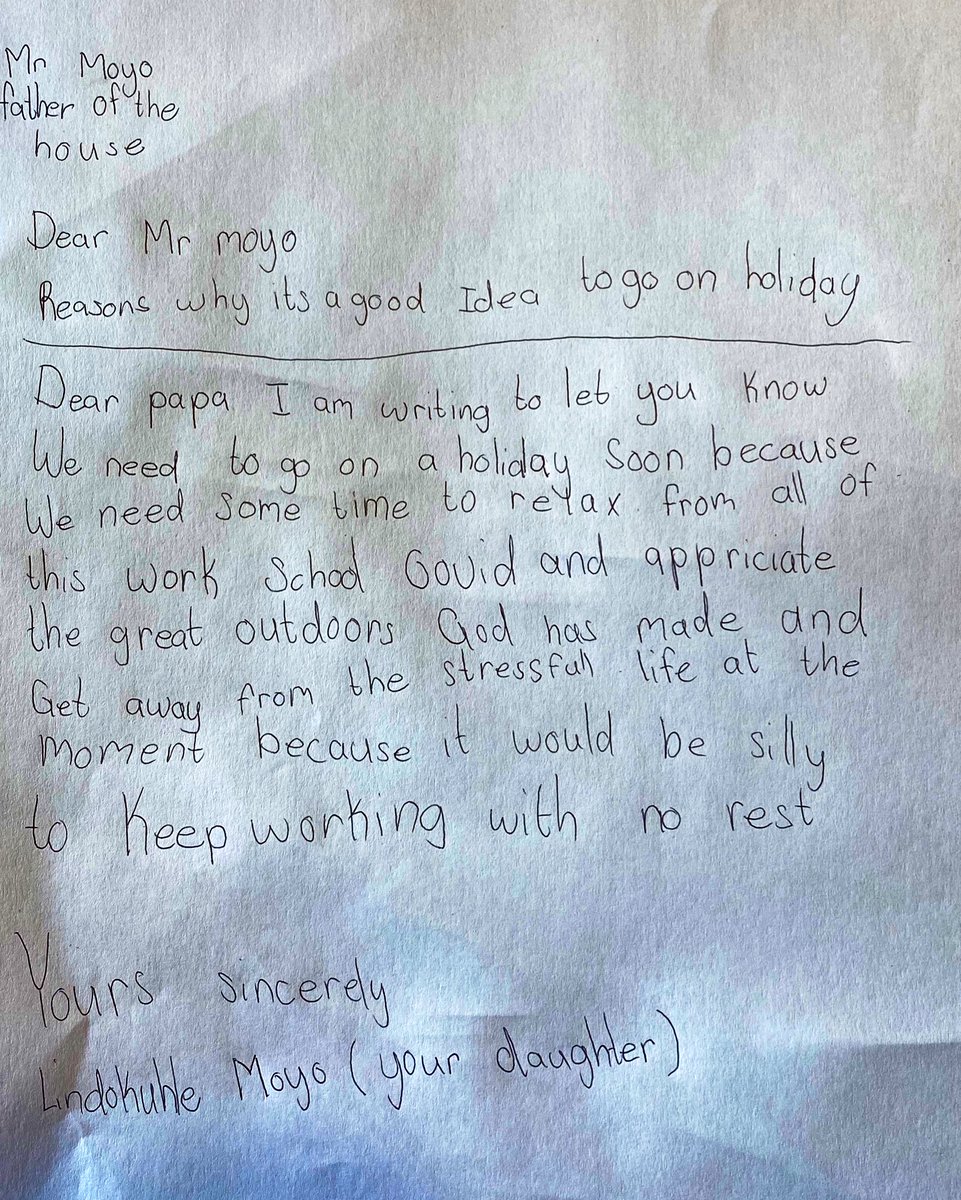 Mr Moyo
father of the
house
Dear Mr moyo
Reasons why its a good Idea to go on holiday
Dear papa I am writing to let you know
We need to go on a holiday Soon because
We need some time to relax from all of
this work School Covid and appriciate
the great outdoors God has made and
Get away from the stressfull life at the
moment because it would be silly
to Keep working with no rest
Yours sincerely
Lindokuhle Moyo (your daughter)